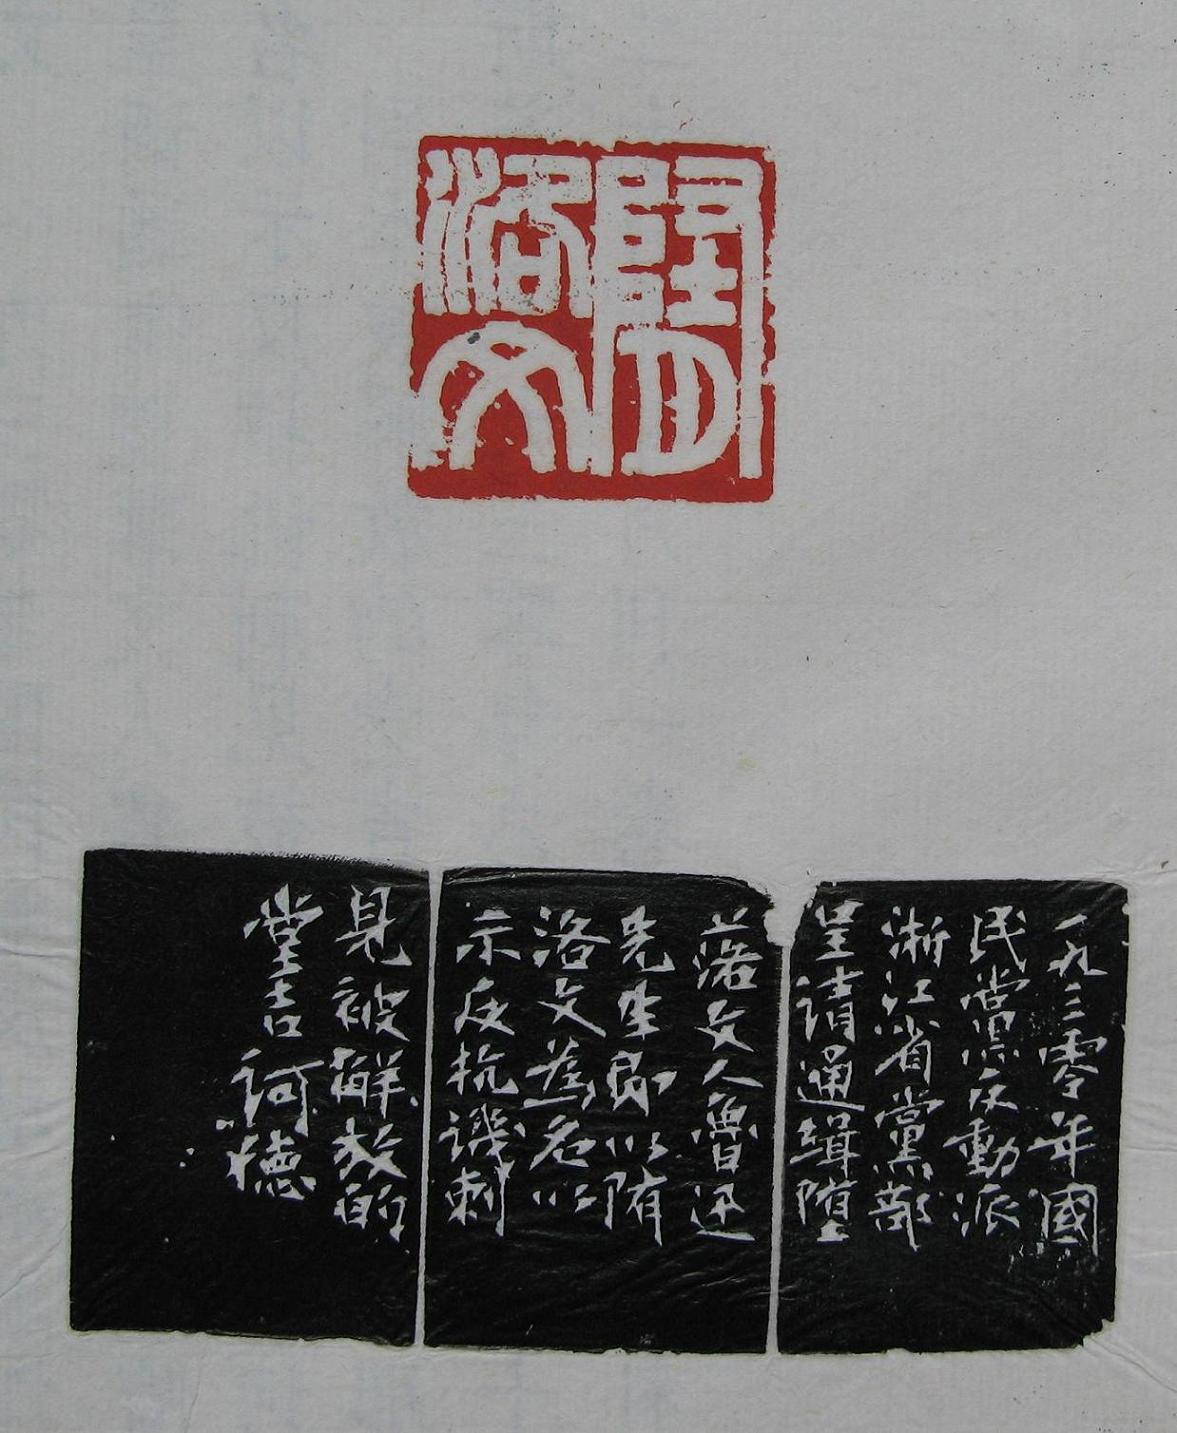 隋
洛文
一九三零年國
民黨反動派
浙江省黨部
呈請通緝墮
落文人魯迅
先生即以隋
洛文為名以
示反抗譏刺
見被解放的
堂吉訶德